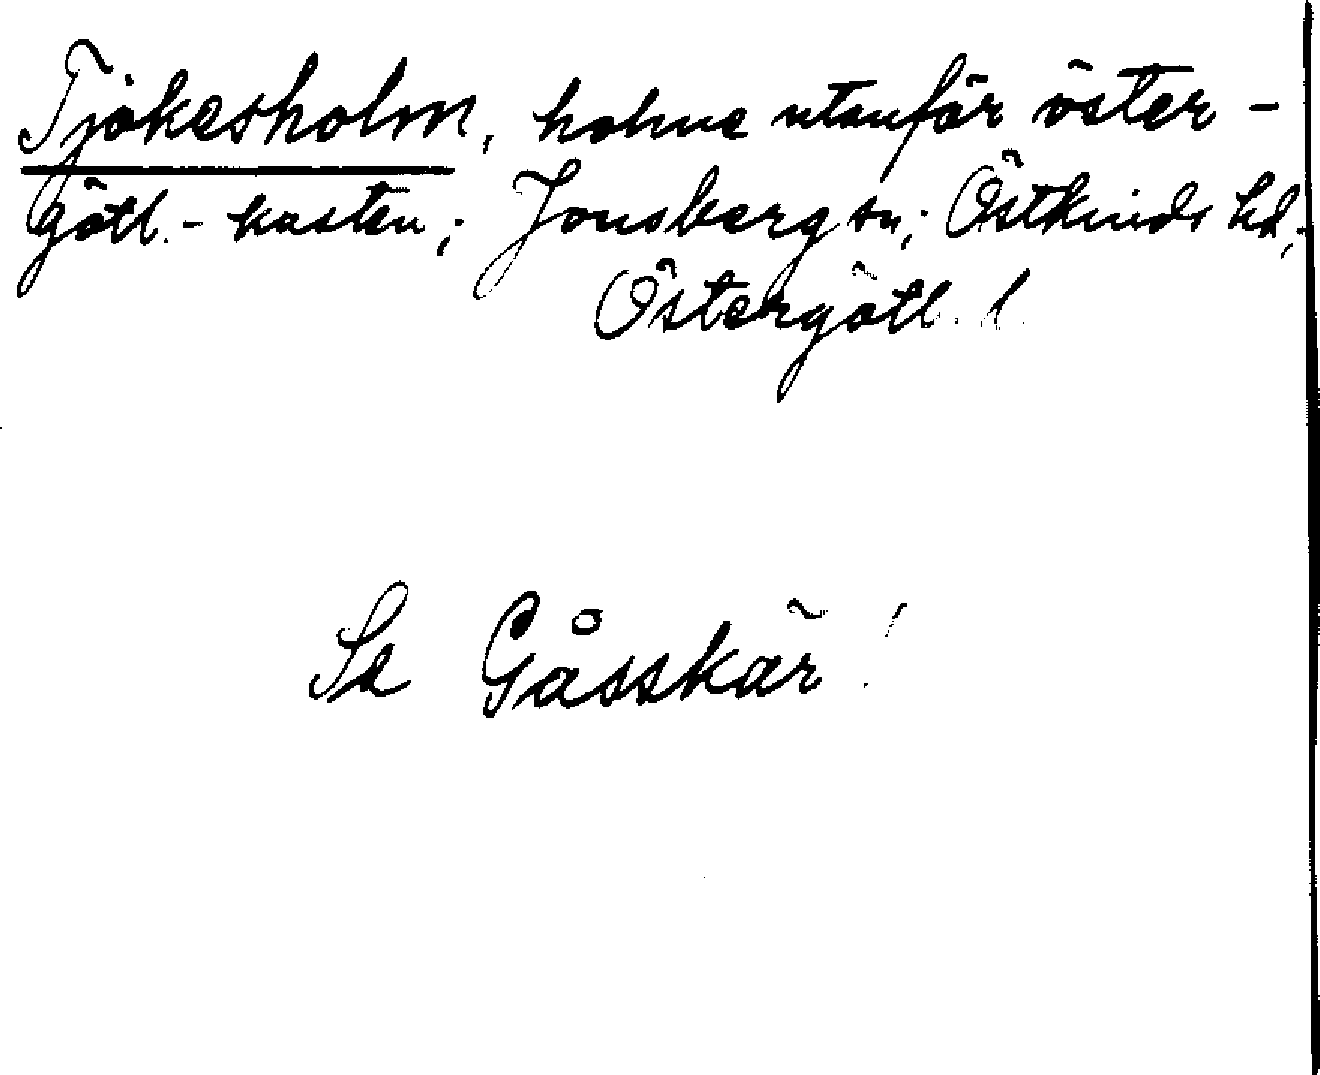 Tjokesholm, holme utanför öster-
götl.-kusten; Jonsberg sn; Östkinds hd,
Östergötl. l.
Se Gåsskär!